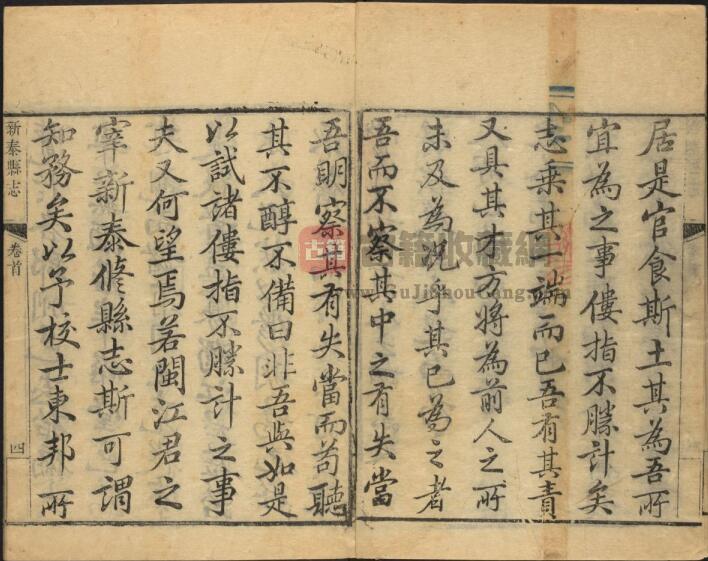 居是官食斯土其為吾所
宜為之事僂指不勝計矣
志乗其一端而已吾有其責
又具其才方將為前人之所
未及為況乎其已為之者
吾而不察其中之有失當
吾明察其有失當而苟聽
其不醇不備曰非吾與如是
以試諸僂指不勝計之事
夫又何望焉若閩江君之
宰新泰修縣志斯可謂
知務矣以予校士東邦所
新泰縣志
卷首
四
古籍
古籍收藏網
www.GuJiShouCang.com